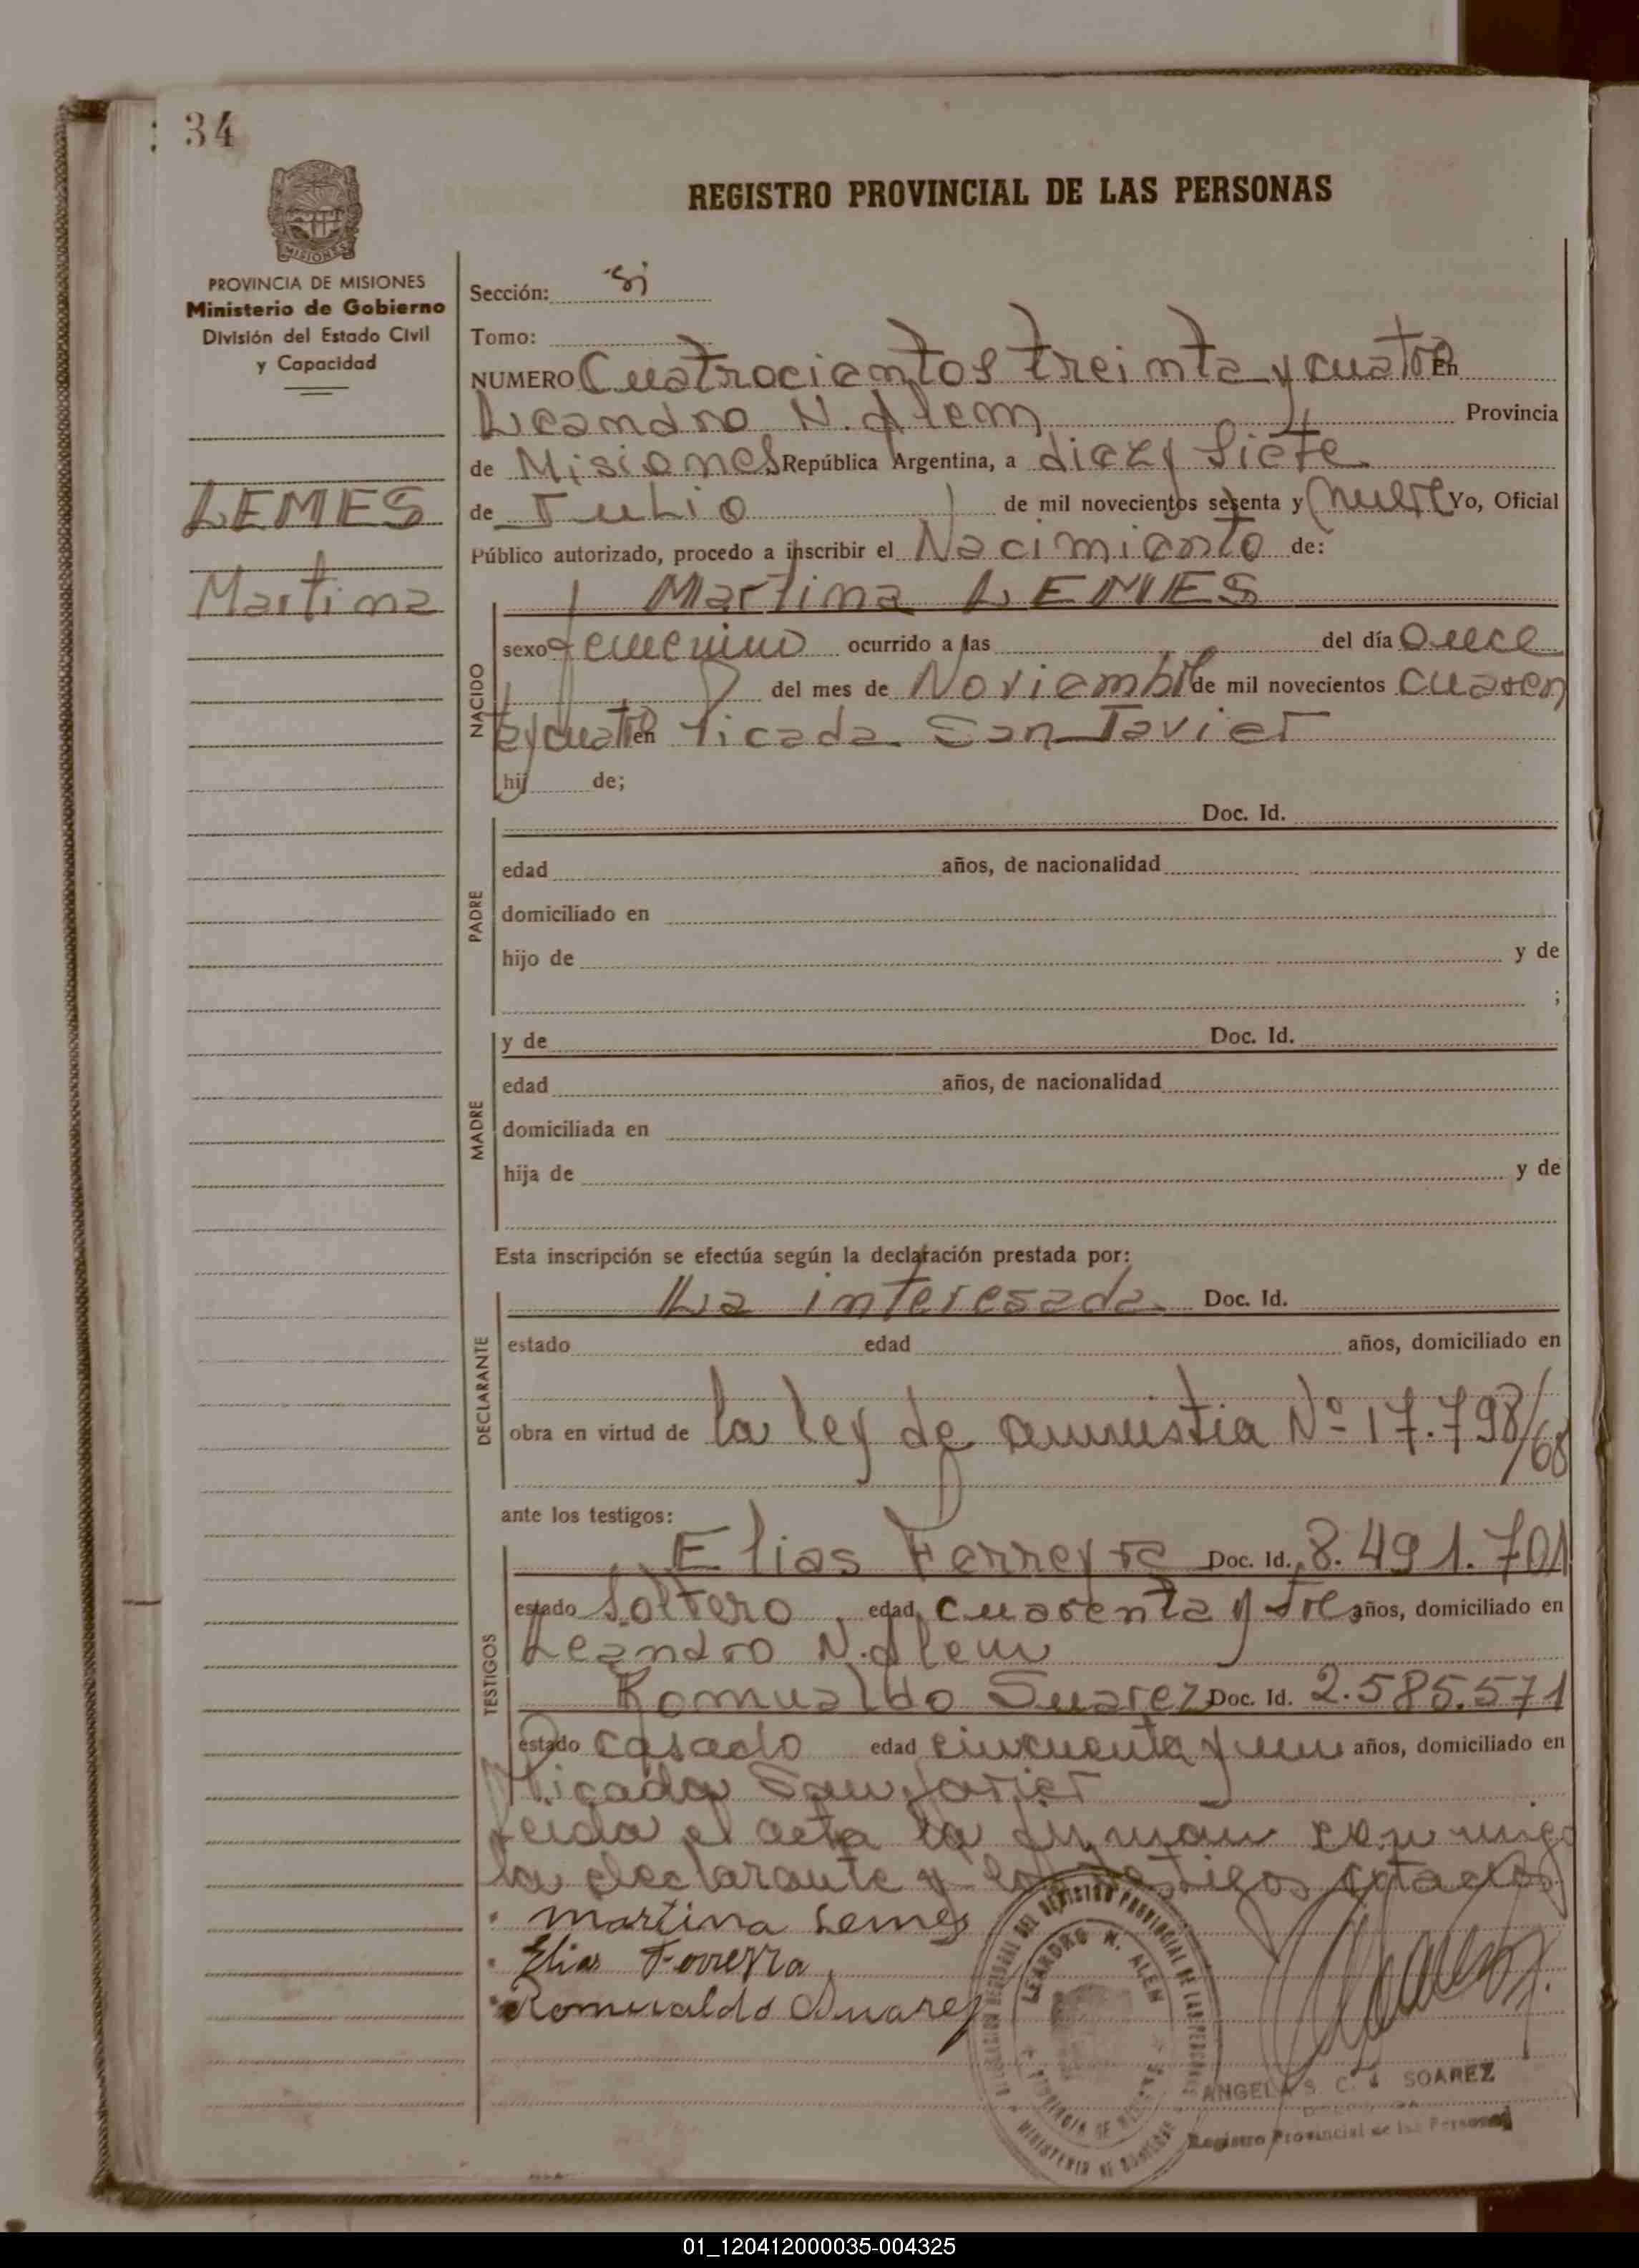 34
MISIONES
REGISTRO PROVINCIAL DE LAS PERSONAS
PROVINCIA DE MISIONES
Ministerio de Gobierno
División del Estado Civil
y Capacidad
LEMES
Martina
Sección:
Tomo:
NUMERO Cuatrocientos treinta y cuatro En
Leandro N. Alem Provincia
de Misiones República Argentina, a diez y siete
de Julio de mil novecientos sesenta y nueve Yo, Oficial
Público autorizado, procedo a inscribir el Nacimiento de:
Martina LEMES
NACIDO
sexo femenino ocurrido a las del día once
del mes de Noviembre de mil novecientos cuaren
ta y cuatro en Picada San Javier
hij de;
PADRE
Doc. Id.
edad años, de nacionalidad
domiciliado en
hijo de y de
;
MADRE
y de Doc. Id.
edad años, de nacionalidad
domiciliada en
hija de y de
Esta inscripción se efectúa según la declaración prestada por:
DECLARANTE
La interesada Doc. Id.
estado edad años, domiciliado en
obra en virtud de la ley de amnistia Nº 17.798/68
ante los testigos:
TESTIGOS
Elias Ferreyra Doc. Id. 8.491.701
estado Soltero edad cuarenta y tres años, domiciliado en
Leandro N. Alem
Romualdo Suarez Doc. Id. 2.585.571
estado casado edad cincuenta y un años, domiciliado en
Picada San Javier
Leida el acta la firman conmigo
la declarante y los testigos citados
Martina Lemes
Elias Ferreyra
Romualdo Suarez
LEANDRO N. ALEM
ANGELA S. C. SOAREZ
Registro Provincial de las Personas
01_120412000035-004325